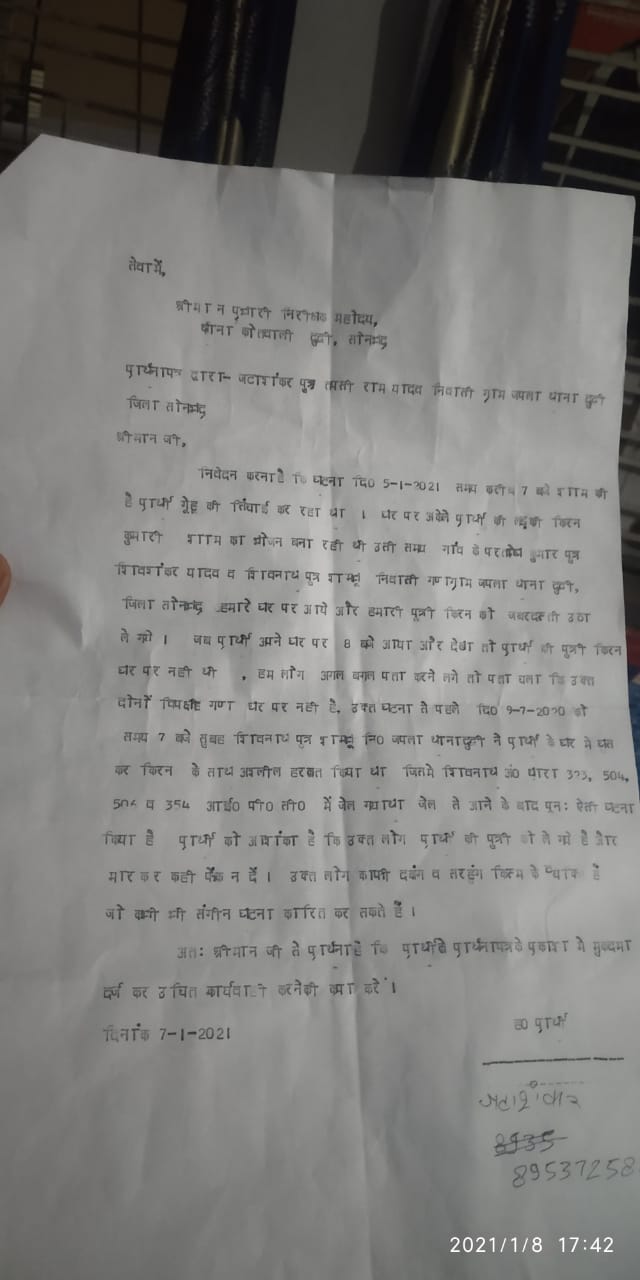 सेवामें,
श्रीमान प्रभारी निरीक्षक महोदय,
थाना कोतवाली दुद्धी, सोनभद्र
प्रार्थनापत्र द्वारा- जटाशंकर पुत्र तपसी राम यादव निवासी ग्राम जपला थाना दुद्धी
जिला सोनभद्र
श्रीमान जी,
निवेदन करना है कि घटना दि0 5-1-2021 समय करीब 7 बजे शाम की
है प्रार्थी गेहू की सिंचाई कर रहा था । घर पर अकेले प्रार्थी की लड़की किरन
कुमारी शाम का भोजन बना रही थी उसी समय गांव के परतोष कुमार पुत्र
शिवशंकर यादव व शिवनाथ पुत्र शम्भू निवासी गणग्राम जपला थाना दुद्धी,
जिला सोनभद्र हमारे घर पर आये और हमारी पुत्री किरन को जबरदस्ती उठा
ले गये । जब प्रार्थी अपने घर पर 8 बजे आया और देखा तो प्रार्थी की पुत्री किरन
घर पर नही थी , हम लोग अगल बगल पता करने लगे तो पता चला कि उक्त
दोनों विपक्षी गण घर पर नही है, उक्त घटना से पहले दि0 9-7-2020 को
समय 7 बजे सुबह शिवनाथ पुत्र शम्भू नि0 जपला थानादुद्धी ने प्रार्थी के घर मे घुस
कर किरन के साथ अश्लील हरकत किया था जिसमे शिवनाथ अं0 धारा 323, 504,
506 व 354 आई0 पी0 सी0 में जेल गयाथा जेल से आने के बाद पुनः ऐसी घटना
किया है प्रार्थी को आशंका है कि उक्त लोग प्रार्थी की पुत्री को ले गये है और
मार कर कही फेंक न दें । उक्त लोग काफी दबंग व सरहंग किस्म के व्यक्ति है
जो कभी भी संगीन घटना कारित कर सकते हैं ।
अतः श्रीमान जी से प्रार्थना है कि प्रार्थी के प्रार्थनापत्र के प्रकाश मे मुकदमा
दर्ज कर उचित कार्यवाही करनेकी कृपा करें ।
दिनांक 7-1-2021
ह0 प्रार्थी
जटाशंकर
8935
89537258
2021/1/8 17:42